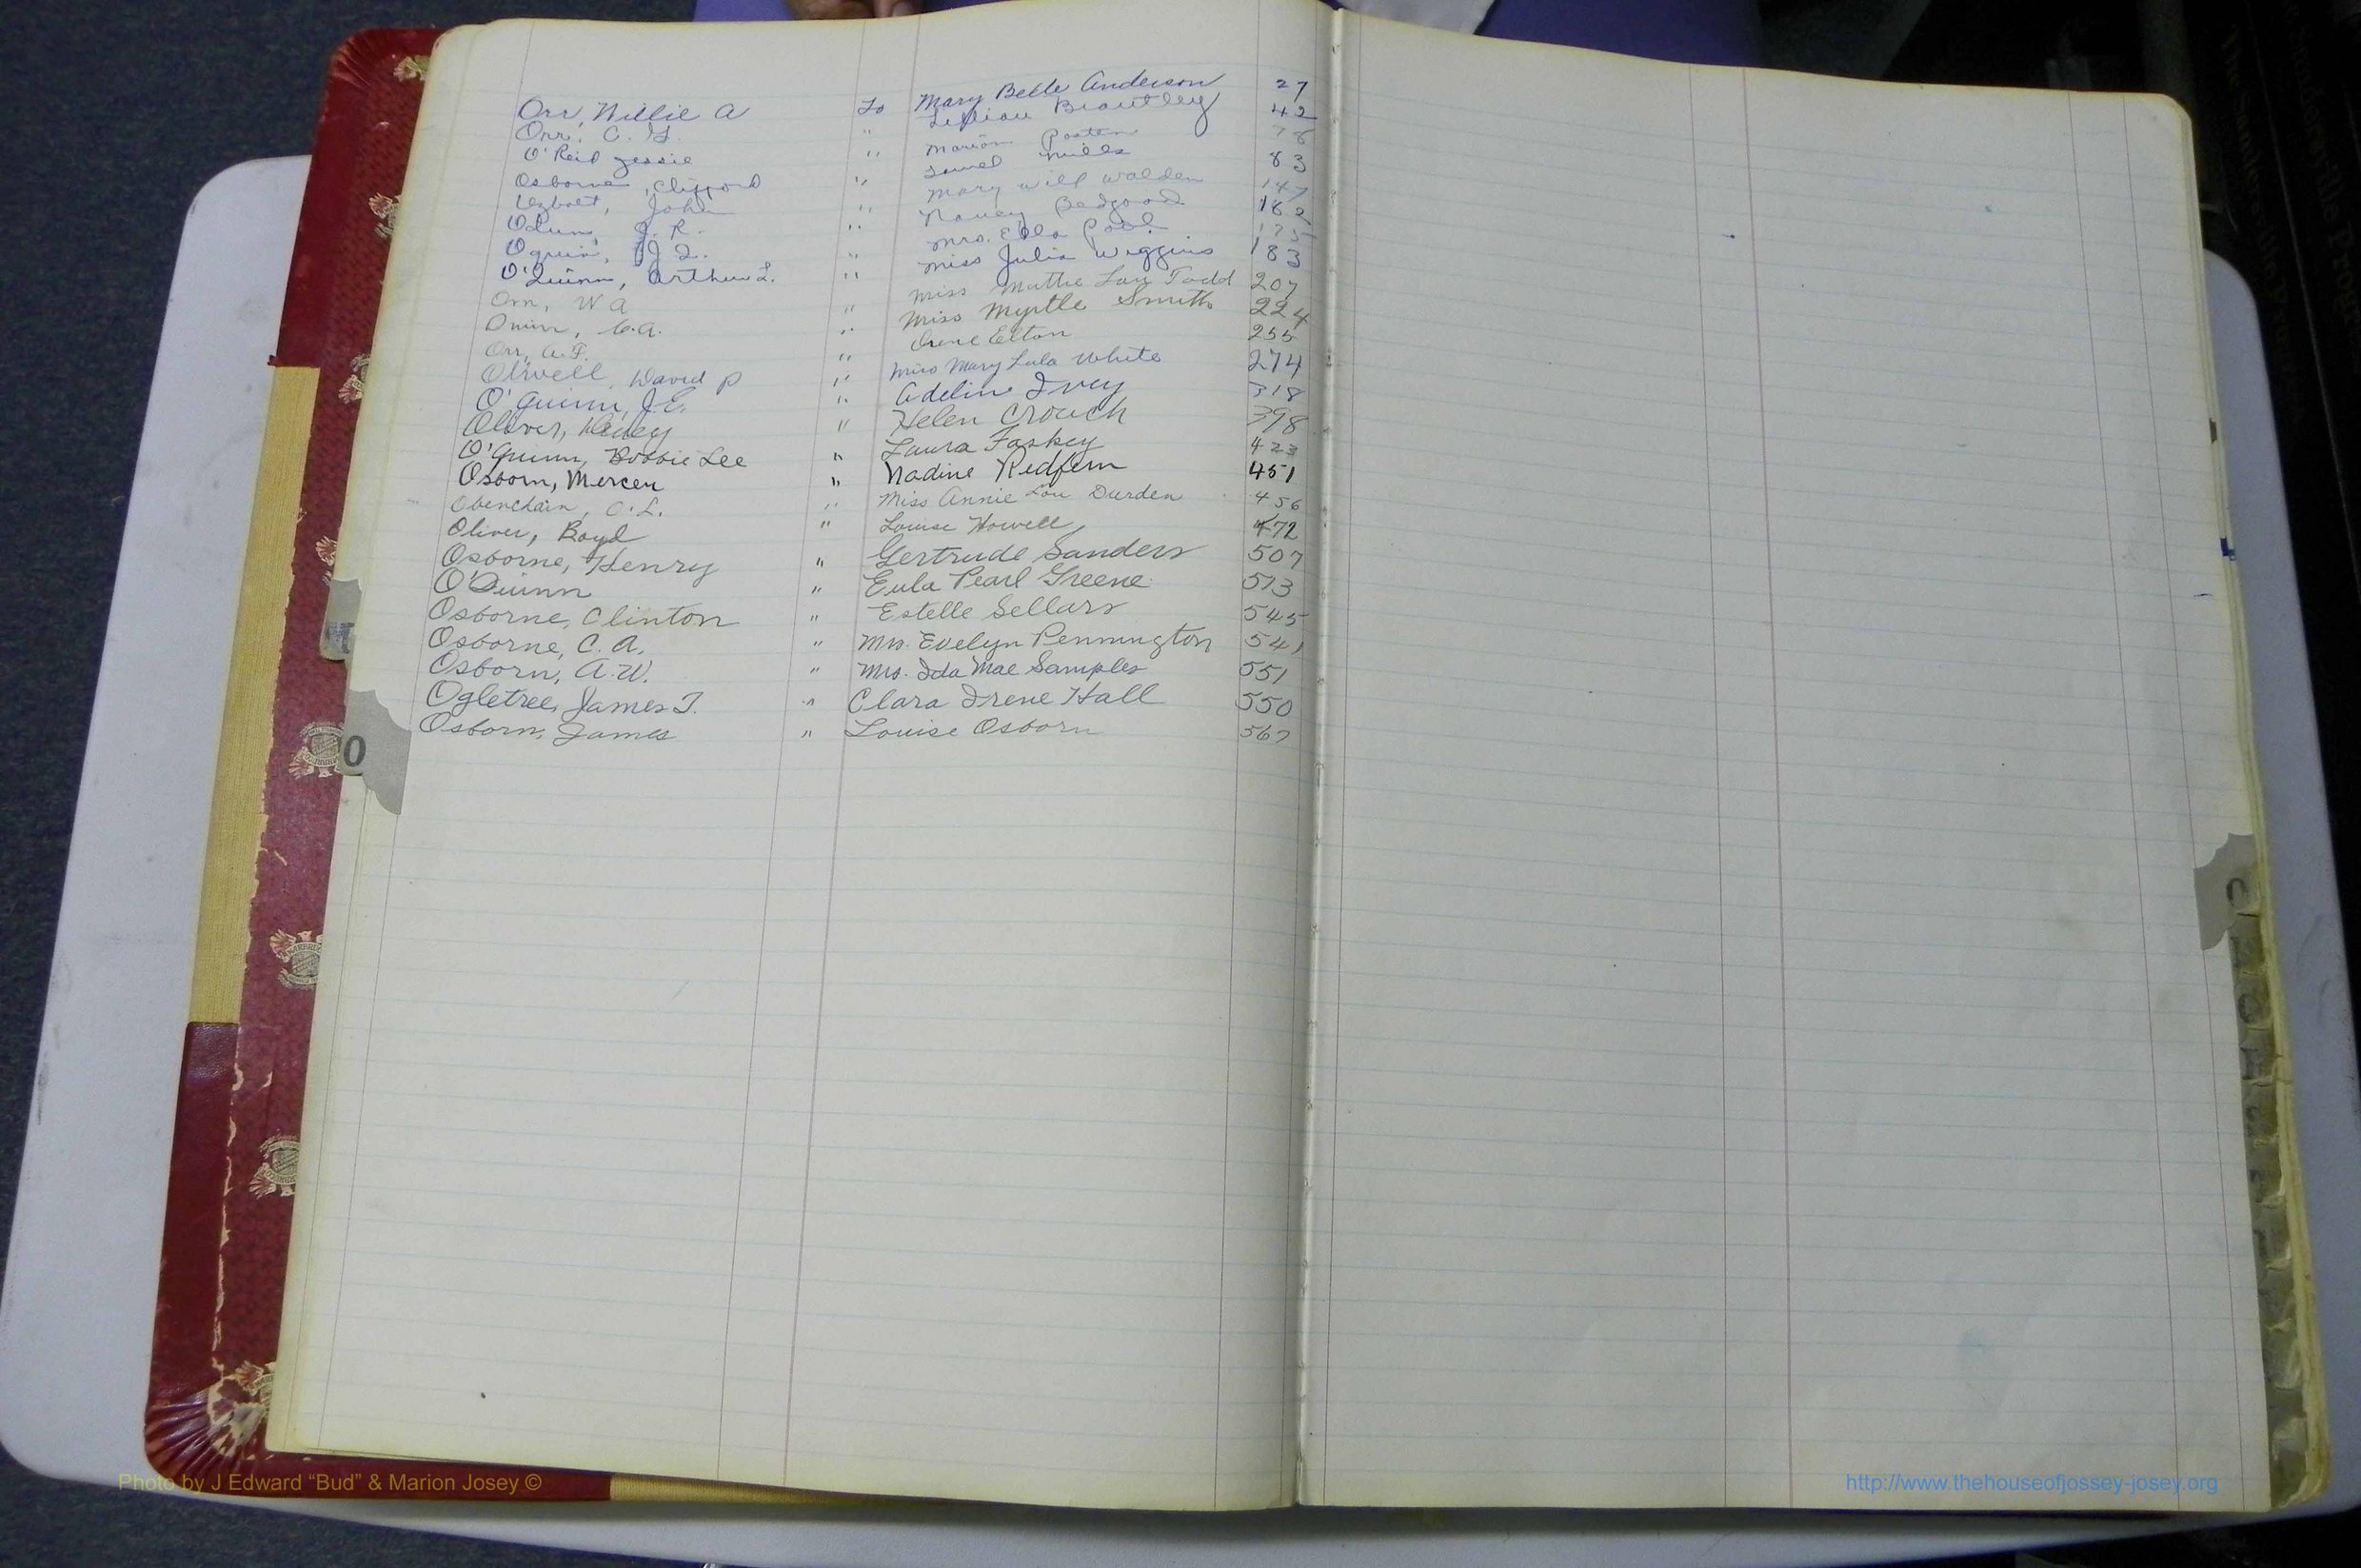 Orr, Willie A To Mary Belle Anderson 27
Orr, C. G. " Lillian Brantley 42
O'Reid Jessie " Marion Posten 78
Osborne, Clifford " Mills 83
John " Mary Will Walden 147
Odum, J. R. " Nancy Bedgood 162
Oquin, J. L. " Mrs. Ella Pool 175
O'Quinn, Arthur L. " Miss Julia Wiggins 183
Orr, W A " Miss Mattie Lou Todd 207
C. A. " Miss Myrtle Smith 224
Orr, A. F. " Irene Elton 255
Olivell, David P " Miss Mary Lula White 274
O'Quinn, J. E. " Adeline Ivey 318
Oliver, " Helen Crouch 398
O'Quinn, Bobbie Lee " Laura Faskey 423
Osborn, Mercer " Nadine Redfern 451
Obenchain, O. L. " Miss Annie Lou Durden 456
Oliver, Boyd " Louise Howell 472
Osborne, Henry " Gertrude Sanders 507
O'Quinn " Eula Pearl Greene 513
Osborne, Clinton " Estelle Sellars 545
Osborne, C. A. " Mrs. Evelyn Pennington 541
Osborn, A. W. " Mrs. Ida Mae Samples 551
Ogletree, James T. " Clara Irene Hall 550
Osborn, James " Louise Osborn 567
O
O
Photo by J Edward “Bud” & Marion Josey ©
http://www.thehouseofjossey-josey.org